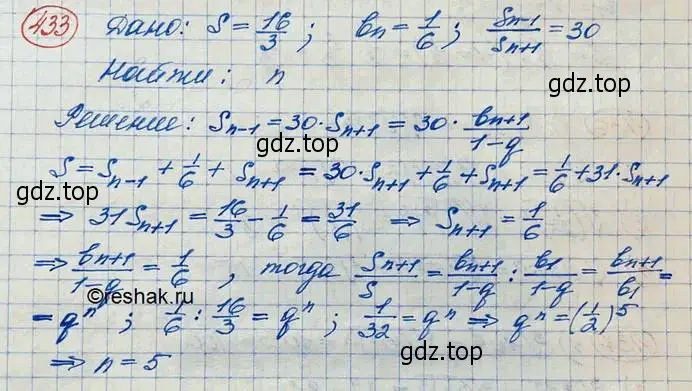 433 Дано: S = 16/3 ; bn = 1/6 ; Sn-1/Sn+1 = 30
gdz.top
Найти: n
gdz.top
Решение: Sn-1 = 30·Sn+1 = 30 · bn+1/1-q
S = Sn-1 + 1/6 + Sn+1 = 30·Sn+1 + 1/6 + Sn+1 = 1/6 + 31·Sn+1
gdz.top
⇒ 31Sn+1 = 16/3 - 1/6 = 31/6 ⇒ Sn+1 = 1/6
gdz.top
⇒ bn+1/1-q = 1/6 , тогда Sn+1/S = bn+1/1-q : b1/1-q = bn+1/b1 =
©reshak.ru
= qⁿ ; 1/6 : 16/3 = qⁿ ; 1/32 = qⁿ ⇒ qⁿ = (1/2)⁵
gdz.top
gdz.top
⇒ n = 5